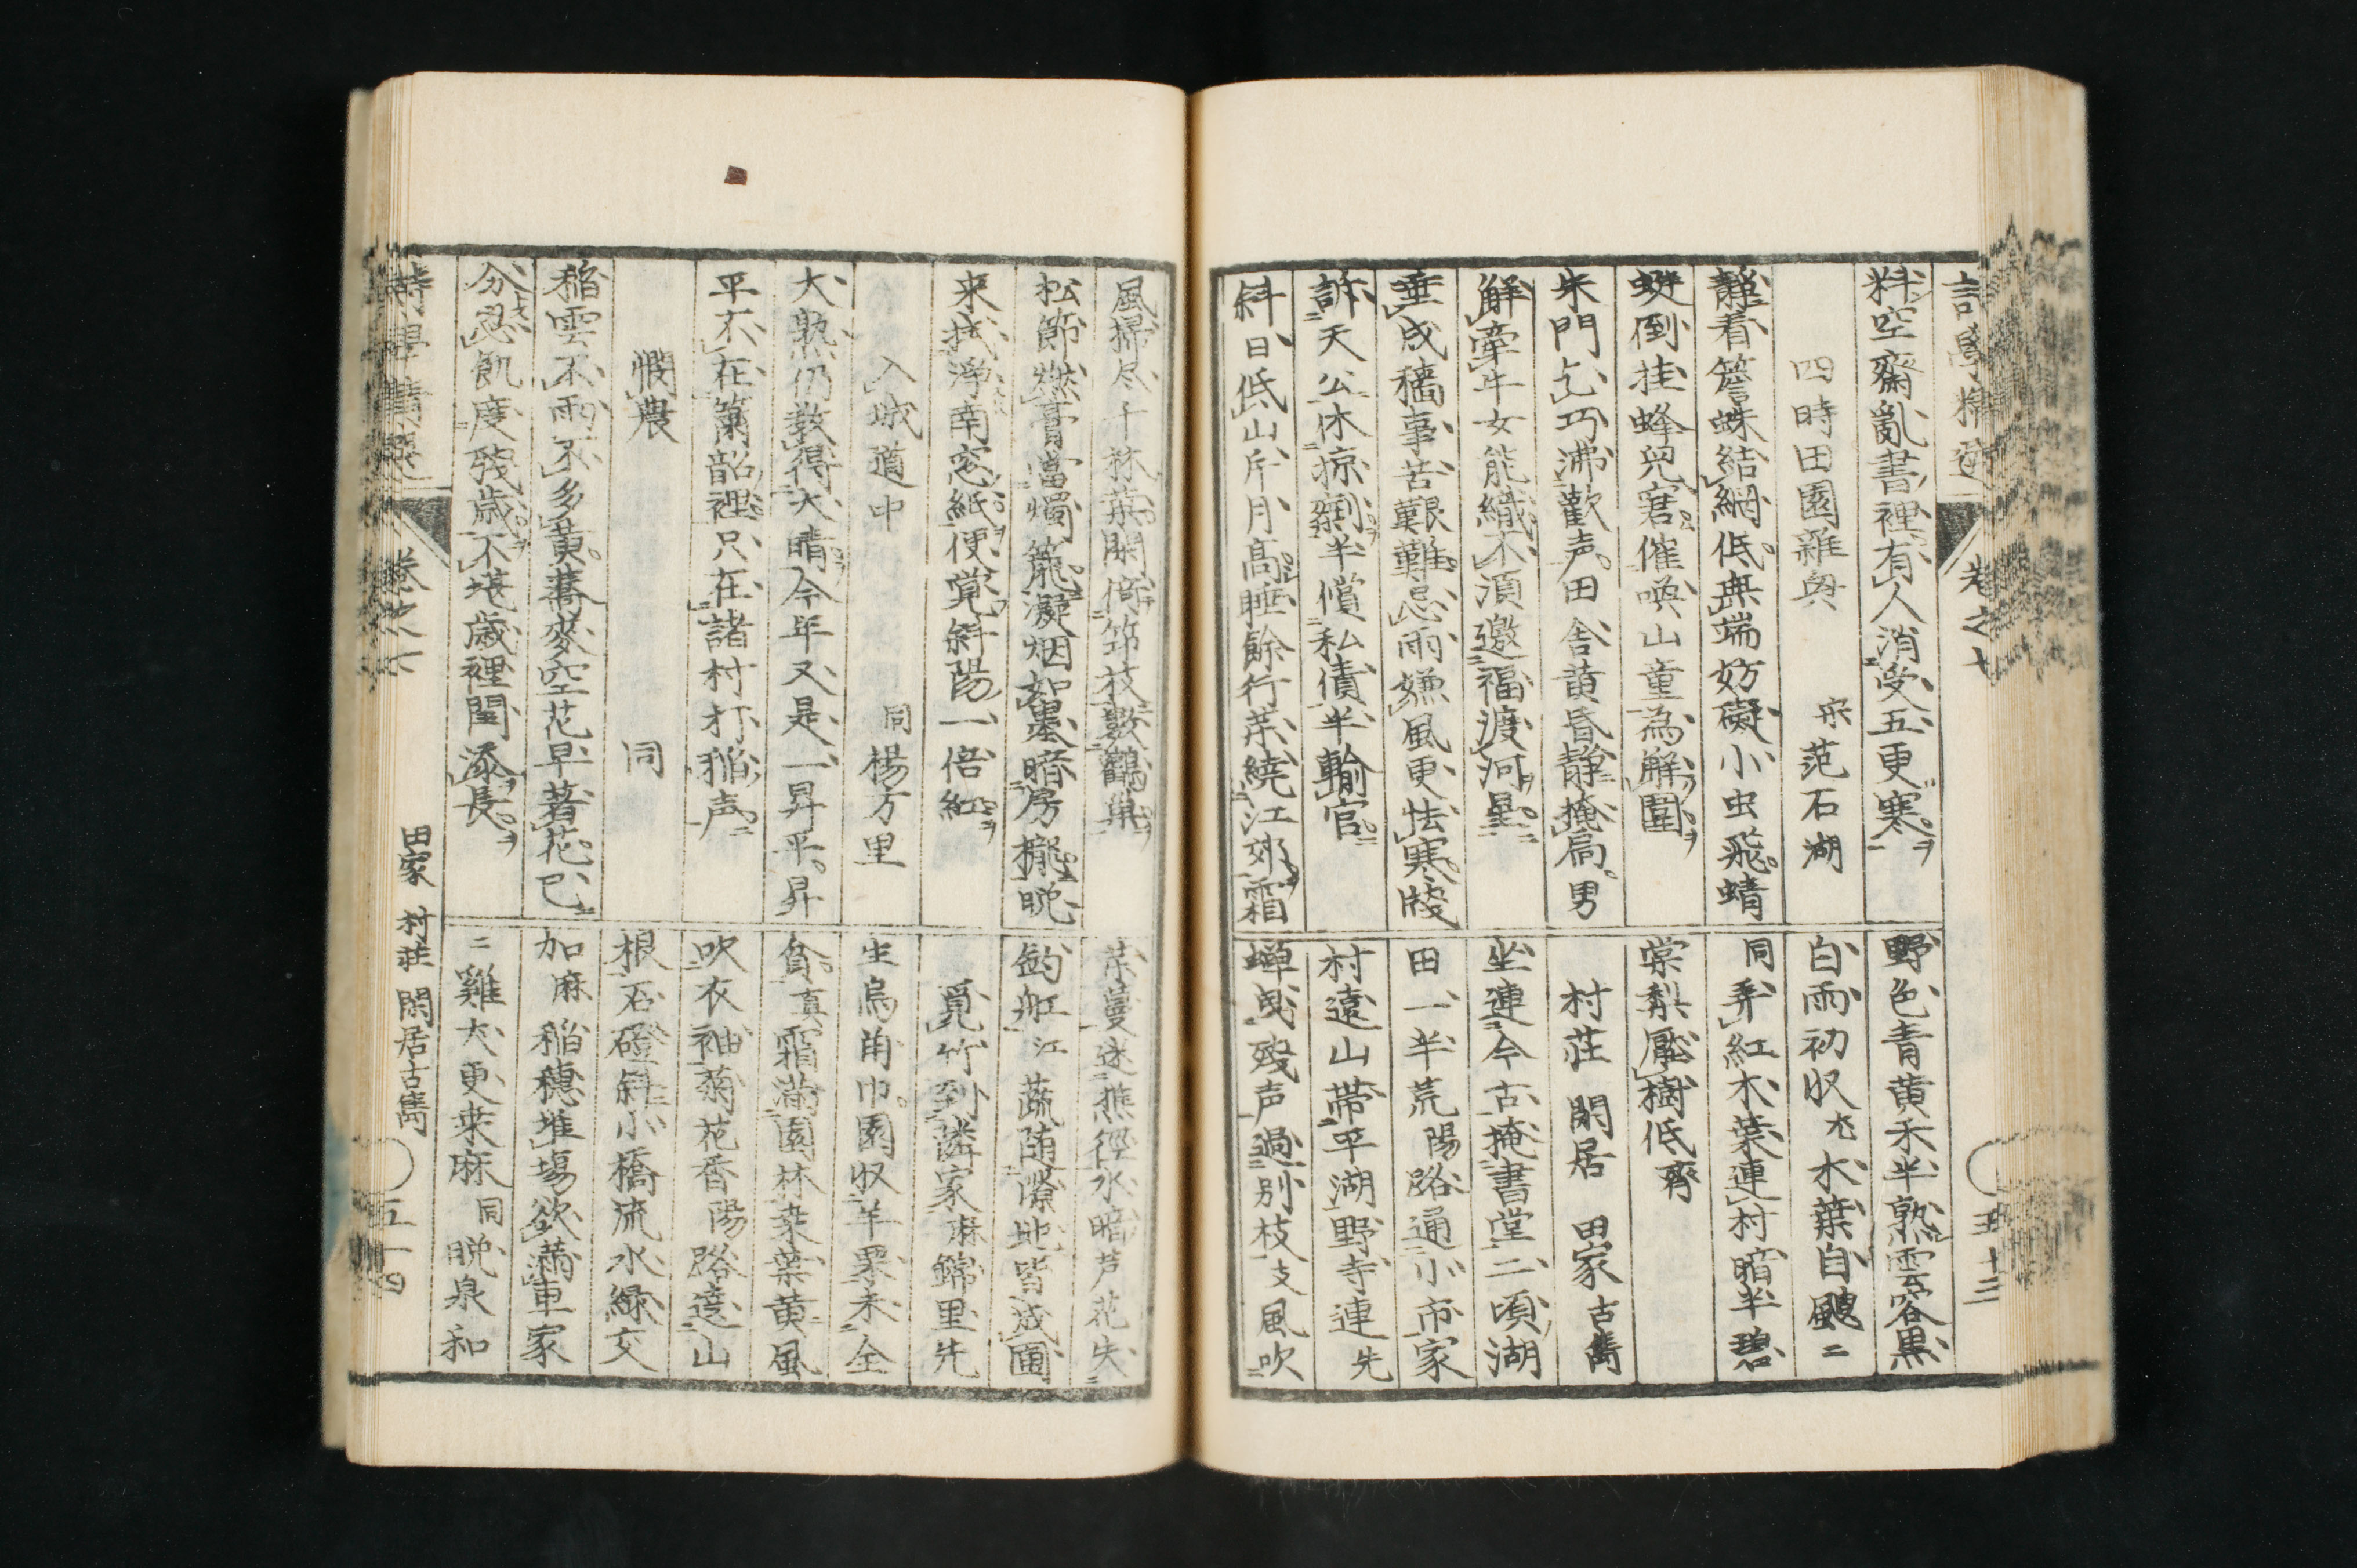 詩學精選 卷之七 五十三
料空齋亂書裡有人消受五更寒
四時田園雜興 宋 范石湖
靜看簷蛛結網低無端妨礙小虫飛蜻
蜓倒挂蜂兒窘催喚山童為解圍
朱門乞巧沸歡声田舍黄昏靜掩扃男
解牽牛女能織不須邀福渡河星
垂成穡事苦艱難忌雨嫌風更怯寒牋
訴天公休掠剩半償私債半輸官
斜日低山片月高睡餘行菜繞江郊霜
野色青黄禾半熟雲容黒
白雨初収 尤 水葉自飃 二
同 弄紅木葉連村暗半碧
棠梨壓樹低 齊
村莊 閑居 田家 古雋
坐連今古掩書堂二頃湖
田一半荒 陽 路通小市家
村遠山帶平湖野寺連 先
蟬曳殘声過別枝 支 風吹
風掃尽千林葉閑倚笻枝數鸛巢
松節燃膏當燭籠凝烟如墨暗房櫳晩
来拭淨南窓紙便覚斜陽一倍紅
入城道中 同 楊万里
大熟仍教得大晴今年又是一昇平昇
平不在簫韶裡只在諸村打稲声
憫農 同
稲雲不雨不多黄蕎麥空花早著花已
分忍飢度残歳不堪歳裡閏添長
菜蔓迷樵徑水暗芦花失
釣舡 江 蔬随隙地皆成圃
覓竹到隣家 麻 錦里先
生烏角巾園収芋栗未全
貧 真 霜滿園林桒葉黄風
吹衣袖菊花香 陽 路遶山
根石磴斜小橋流水緑交
加 麻 稲穂堆塲欲滿車家
二雞犬更来麻 同 晩泉和
詩學精選 卷之七 田家 村莊 閑居古雋 五十四